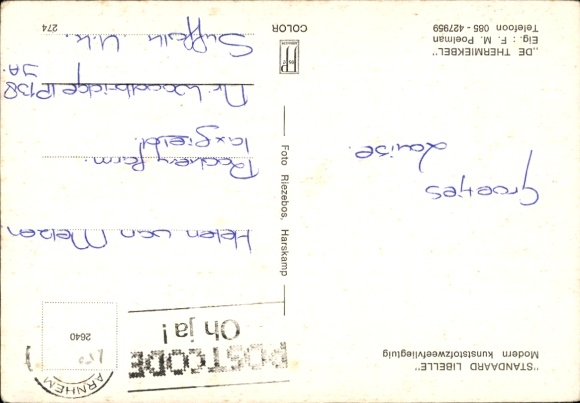 "STANDAARD LIBELLE"
Modern kunststofzweefvliegtuig
Groetjes
Louise.
„DE THERMIEKBEL"
Eig.: M. F. Poelman
Telefoon 085 - 427959
Foto Riezebos, Harskamp
COLOR
274
ARNHEM
2640
POSTCODE
Oh ja!
Helen van Metzen
Rookery farm.
Taxfield.
Nr. Woodbridge IP138
JA.
Suffolk U.k.